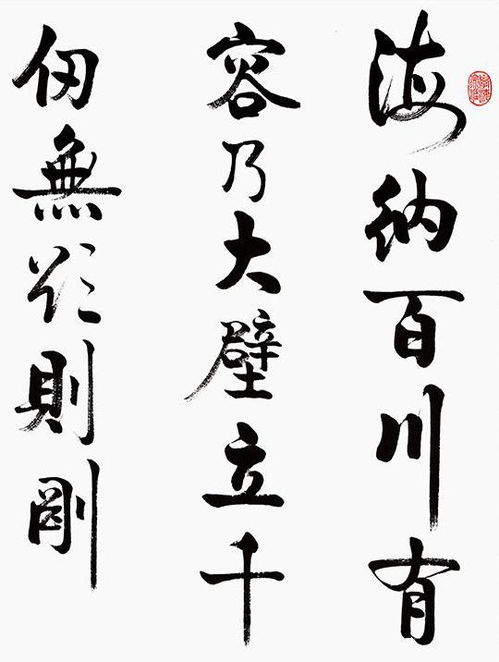 海納百川有
容乃大壁立千
仞無欲則剛